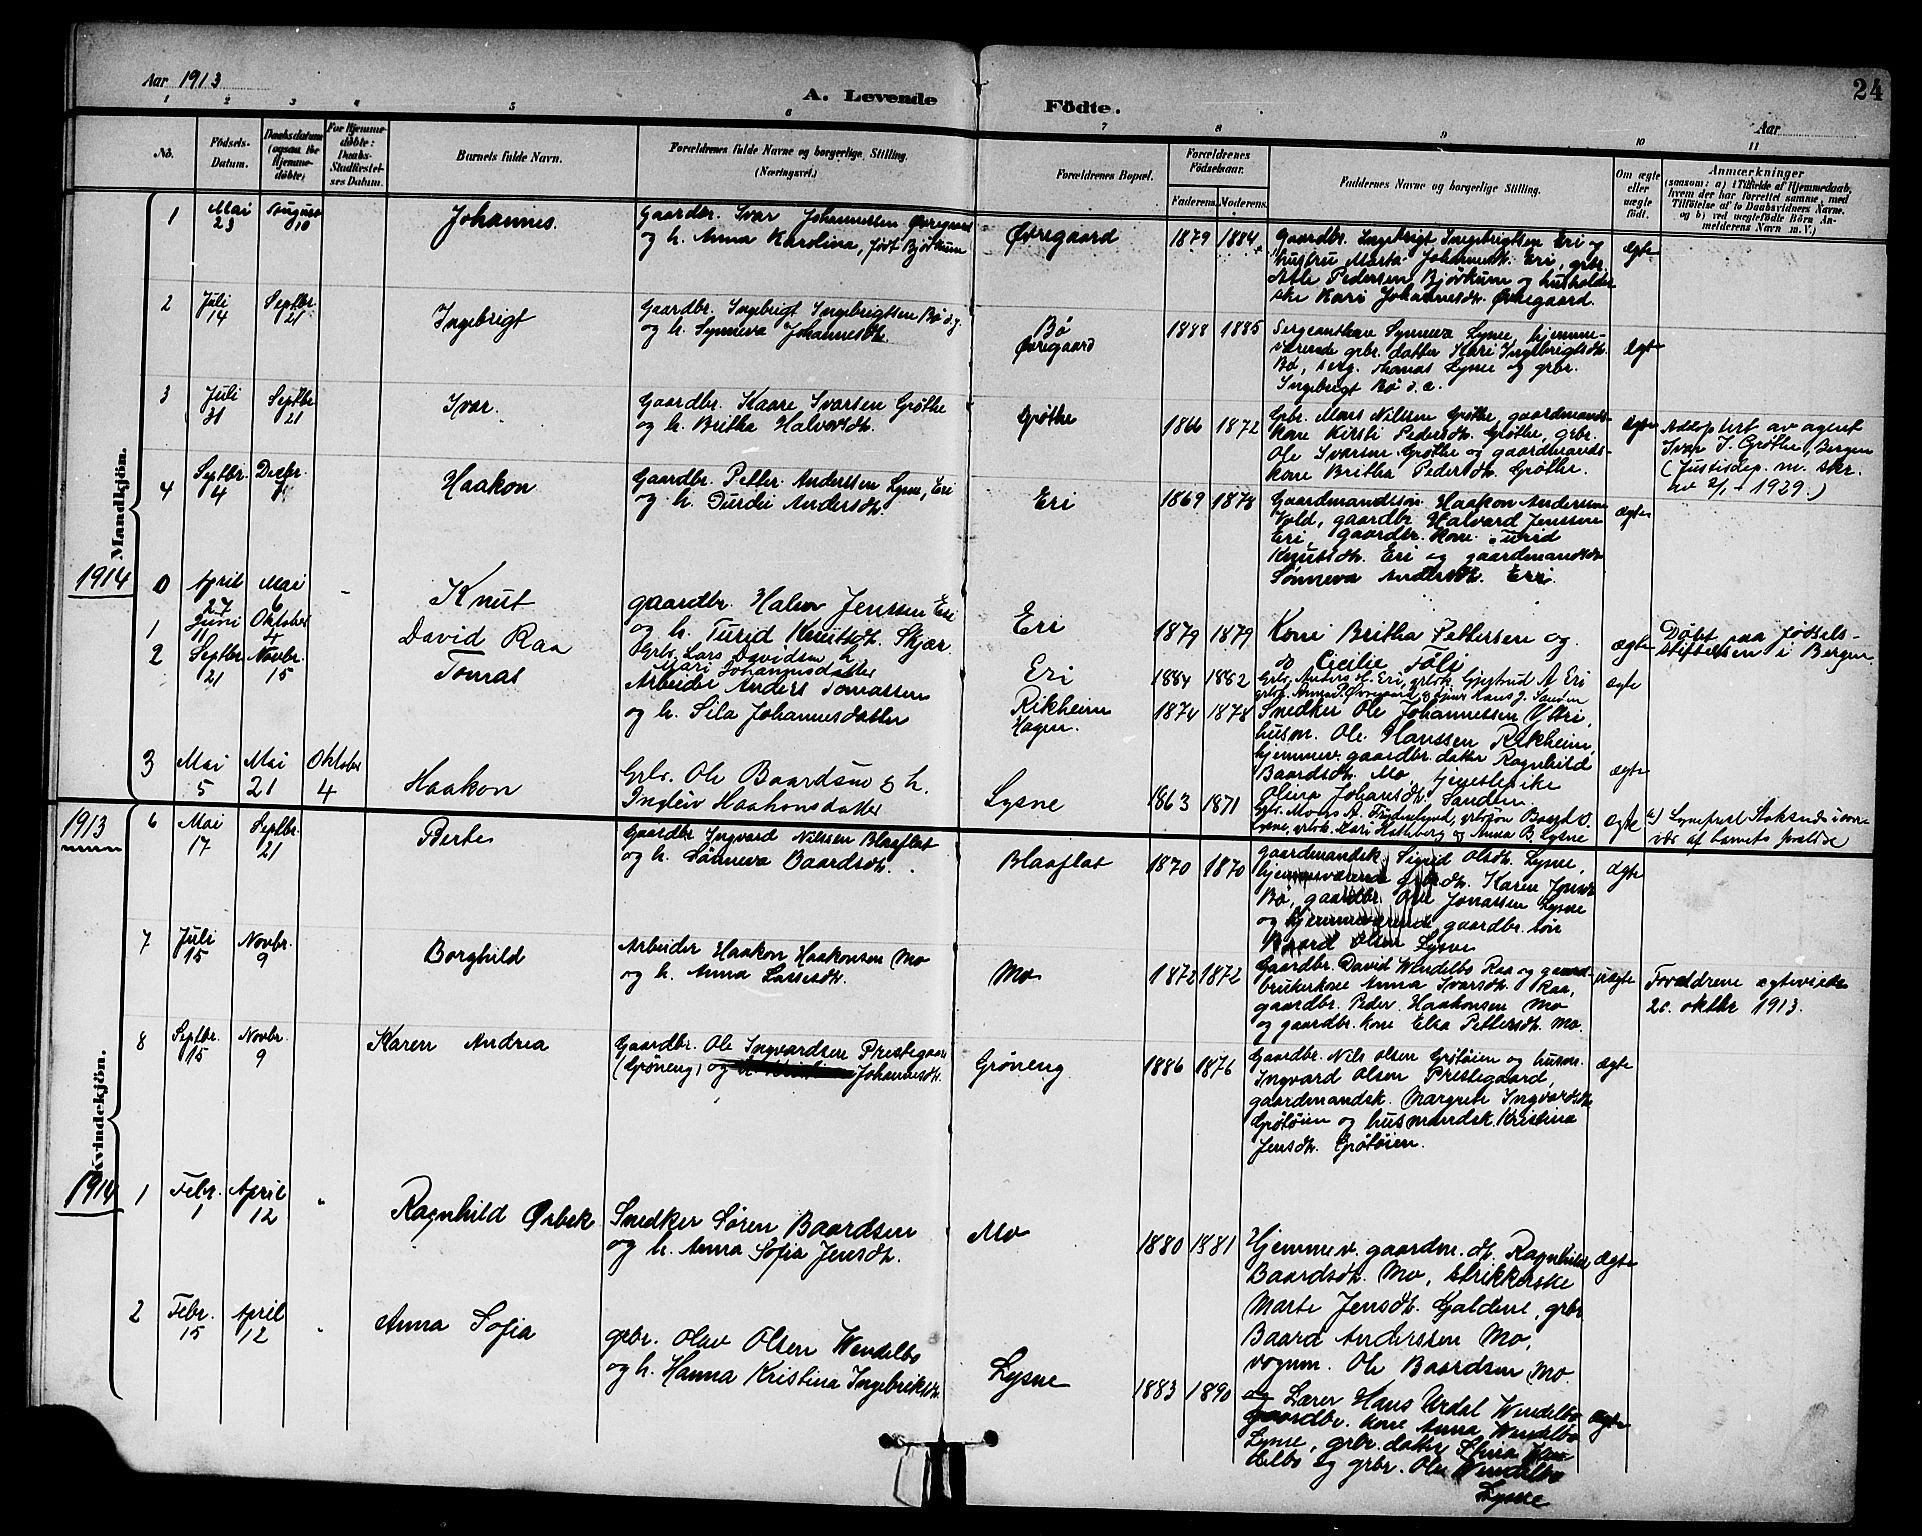 Aar 1913
A. Levende Födte.
24
Aar
1 2 3 4 5 6 7 8 9 10 11
No.
Födsels-Datum.
Daabsdatum (ogsaa for Hjemmedöbte)
For Hjemmedöbte: Daabs-Stadfæstelses Datum.
Barnets fulde Navn.
Forældrenes fulde Navne og borgerlige Stilling.
(Næringsvei.)
Forældrenes Bopæl.
Forældrenes Födselsaar.
Faderens. Moderens.
Faddernes Navne og borgerlige Stilling.
Om ægte eller uægte födt.
Anmærkninger
(saasom: a) i Tilfælde af Hjemmedaab, hvem der har forrettet samme, med Tilföielse af to Daabsvidners Navne, og b) ved uægtefödte Börn Anmelderens Navn m. V.)
Mandkjön.
1 Mai 23 August 10 Johannes.
Gaardbr. Ivar Johannessen Øvregaard
og h. Anna Karolina, født Bjørkum
Øvregaard 1879 1884
Gaardbr. Ingebrigt Ingebrigtsen Eri og
hustru Marta Johannesdt. Eri, grbr.
Atle Pedersen Bjørkum og husholder
ske Kari Johannesdt. Øvregaard.
ægte
2 Juli 14 Septbr. 21 Ingebrigt
Gaardbr. Ingebrigt Ingebrigtsen Bø
og h. Synneva Johannesdt.
Bø
Øvregaard
1888 1885
Sergeantkone Synneva Lysne, hjemme-
værende grbr. datter Kari Ingebrigtsdt.
Bø, serg. Tomas Lysne og grbr.
Ingebrigt Bø s.a.
ægte
3 Juli 31 Septbr 21 Ivar.
Gaardbr. Kaare Ivarsen Grøthe
og h. Britha Halvorsdt.
Grøthe 1866 1872
Grbr. Mons Nilssen Grøthe, gaardmands-
kone Kirsti Pedersdt. Grøthe, grbr.
Ole Ivarsen Grøthe og gaardmands-
kone Britha Pedersdt. Grøthe.
ægte
Adoptert av agent
Ivar I. Grøthe, Bergen
(Justisdep. m. skr.
av 2/1 1929.)
4 Septbr. 4 Decbr. Haakon
Gaardbr. Petter Anderssen Lysne, Eri
og h. Durdei Andersdt.
Eri 1869 1878
Gaardmandssøn Haakon Anderssen
Vold, gaardbr. Halvard Jenssen
Eri, gaardbr. kone Turid
Knutsdt. Eri og gaardmandsdt.
Sønneva Andersdt. Eri.
ægte
1914
0 April 27 Mai 6 - Knut
gaardbr. Halvor Jenssen Eri
og h. Turid Knutsdt. Skjær.
Eri 1879 1879
Kone Britha Pettersen og
do Cecilie Føli
ægte
Døbt paa fødsels-
stiftelsen i Bergen
1 Juni 11 Oktober 4 David Raa
Grbr. Lars Davidsen &
Mari Johannesdatter
Eri 1884 1882
Grbr. Anders H. Eri, grbrk. Gjertrud A Eri
grbr. Anna P. Øvregaard, Hans J. Sanden
ægte
2 Septbr 21 Novbr. 15 Tomas
Arbeider Anders Tomassen
og h. Sila Johannesdatter
Rikheim
Hagen.
1874 1878
Snedker Ole Johannessen Ytri,
husm. Ole Hanssen Rikheim,
hjemmev. gaardbr. datter Ragnhild
Baardsdt. Mo, tjenestepike
Olina Johansdt. Sanden
ægte
3 Mai 5 Mai 21 Oktober 4 Haakon
Grbr. Ole Baardsen & h.
Ingleiv Haakonsdatter
Lysne 1863 1871
Grbr. Mons A. Fredenlund, grbrsøn Baard O.
Lysne, grbrk. Kari Hamberg og Anna B. Lysne
ægte
Kvindekjön.
1913
6 Mai 17 Septbr. 21 Berte
Gaardbr. Ingvard Nilssen Blaaflat
og h. Sønneva Baardsdt.
Blaaflat 1870 1870
Gaardmandsk. Sigrid Olsdt. Lysne,
hjemmeværende grbr.dt. Karen Jensdt
Bø, gaardbr. Ole Jonassen Lysne
og hjemmeværende gaardbr. søn
Baard Olsen Lysne
ægte
7 Juli 15 Novbr. 9 Borghild
Arbeider Haakon Haakonsen Mo
og h. Anna Lassesdt.
Mo 1872 1872
Gaardbr. David Wendelbo Raa og gaard-
brukerkone Anna Ivarsdt. Raa,
gaardbr. Peder Haakonsen Mo
og gaardbr. kone Elsa Pettersdt. Mo.
uægte
Forældrene egteviede
20. oktbr 1913.
8 Septbr. 15 Novbr. 9 Karen Andrea
Gaardbr. Ole Ingvardsen Prestegaard
(Grøneng) og Johannesdt.
Grøneng 1886 1876
Gaardbr. Nils Olsen Grøtøien og husm.
Ingvard Olsen Prestegaard,
gaardmandsk. Margrete Ingvardsdt.
Grøtøien og husmandsk. Kristina
Jensdt. Grøtøien.
ægte
1914
1 Febr. 1 April 12 Ragnhild Ørbek
Snedker Søren Baardsen
og h. Anna Sofia Jensdt.
Mo 1880 1881
Hjemmev. gaardm. dt. Ragnhild
Baardsdt. Mo, strikkerske
Marte Jensdt. Galdene, grbr
Baard Anderssen Mo,
vognm. Ole Baardsen Mo
ægte
2 Febr. 15 April 12 Anna Sofia
grbr. Olav Olsen Wendelbo
og h. Hanna Kristina Ingebriktsdt
Lysne 1883 1890
og Lærer Hans Urdal Wendelbo
Gaardbr. kone Anna Wendelbo
Lysne, grbr. datter Stina Wen-
delbo og grbr. Ole Wendelbo
Lysne
ægte